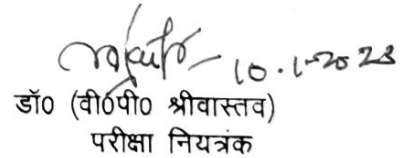 10.1.2023
डॉ0 (वी0पी0 श्रीवास्तव)
परीक्षा नियत्रंक